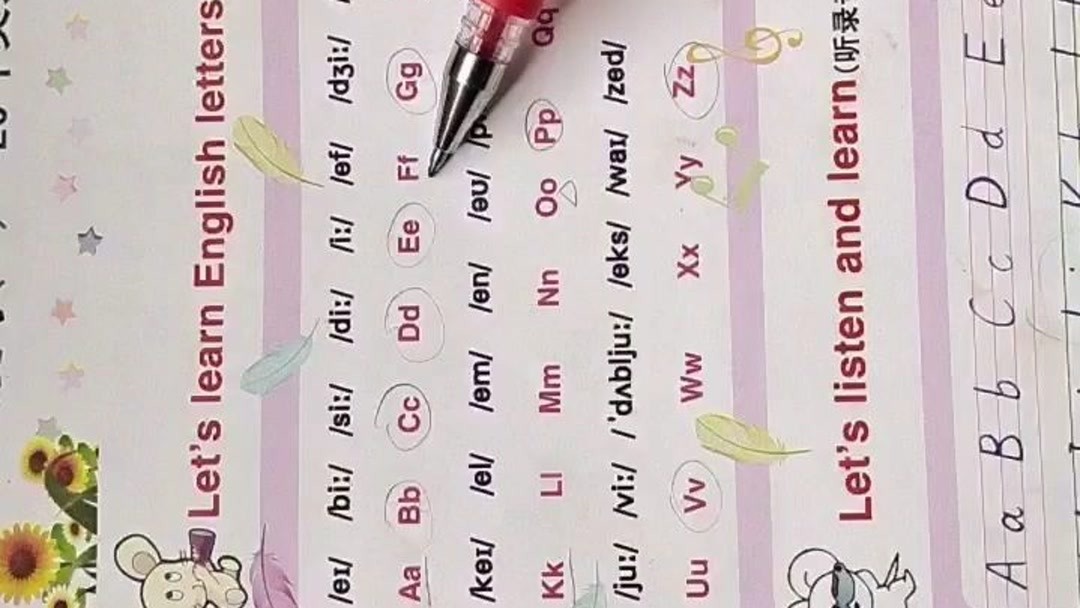 Let's learn English letters
/eɪ/ /biː/ /siː/ /diː/ /iː/ /ef/ /dʒiː/
Aa Bb Cc Dd Ee Ff Gg
/keɪ/ /el/ /em/ /en/ /əʊ/
Kk Ll Mm Nn Oo Pp Qq
/juː/ /viː/ /ˈdʌbljuː/ /eks/ /waɪ/ /zed/
Uu Vv Ww Xx Yy Zz
Let's listen and learn(听录
A a B b C c D d E e